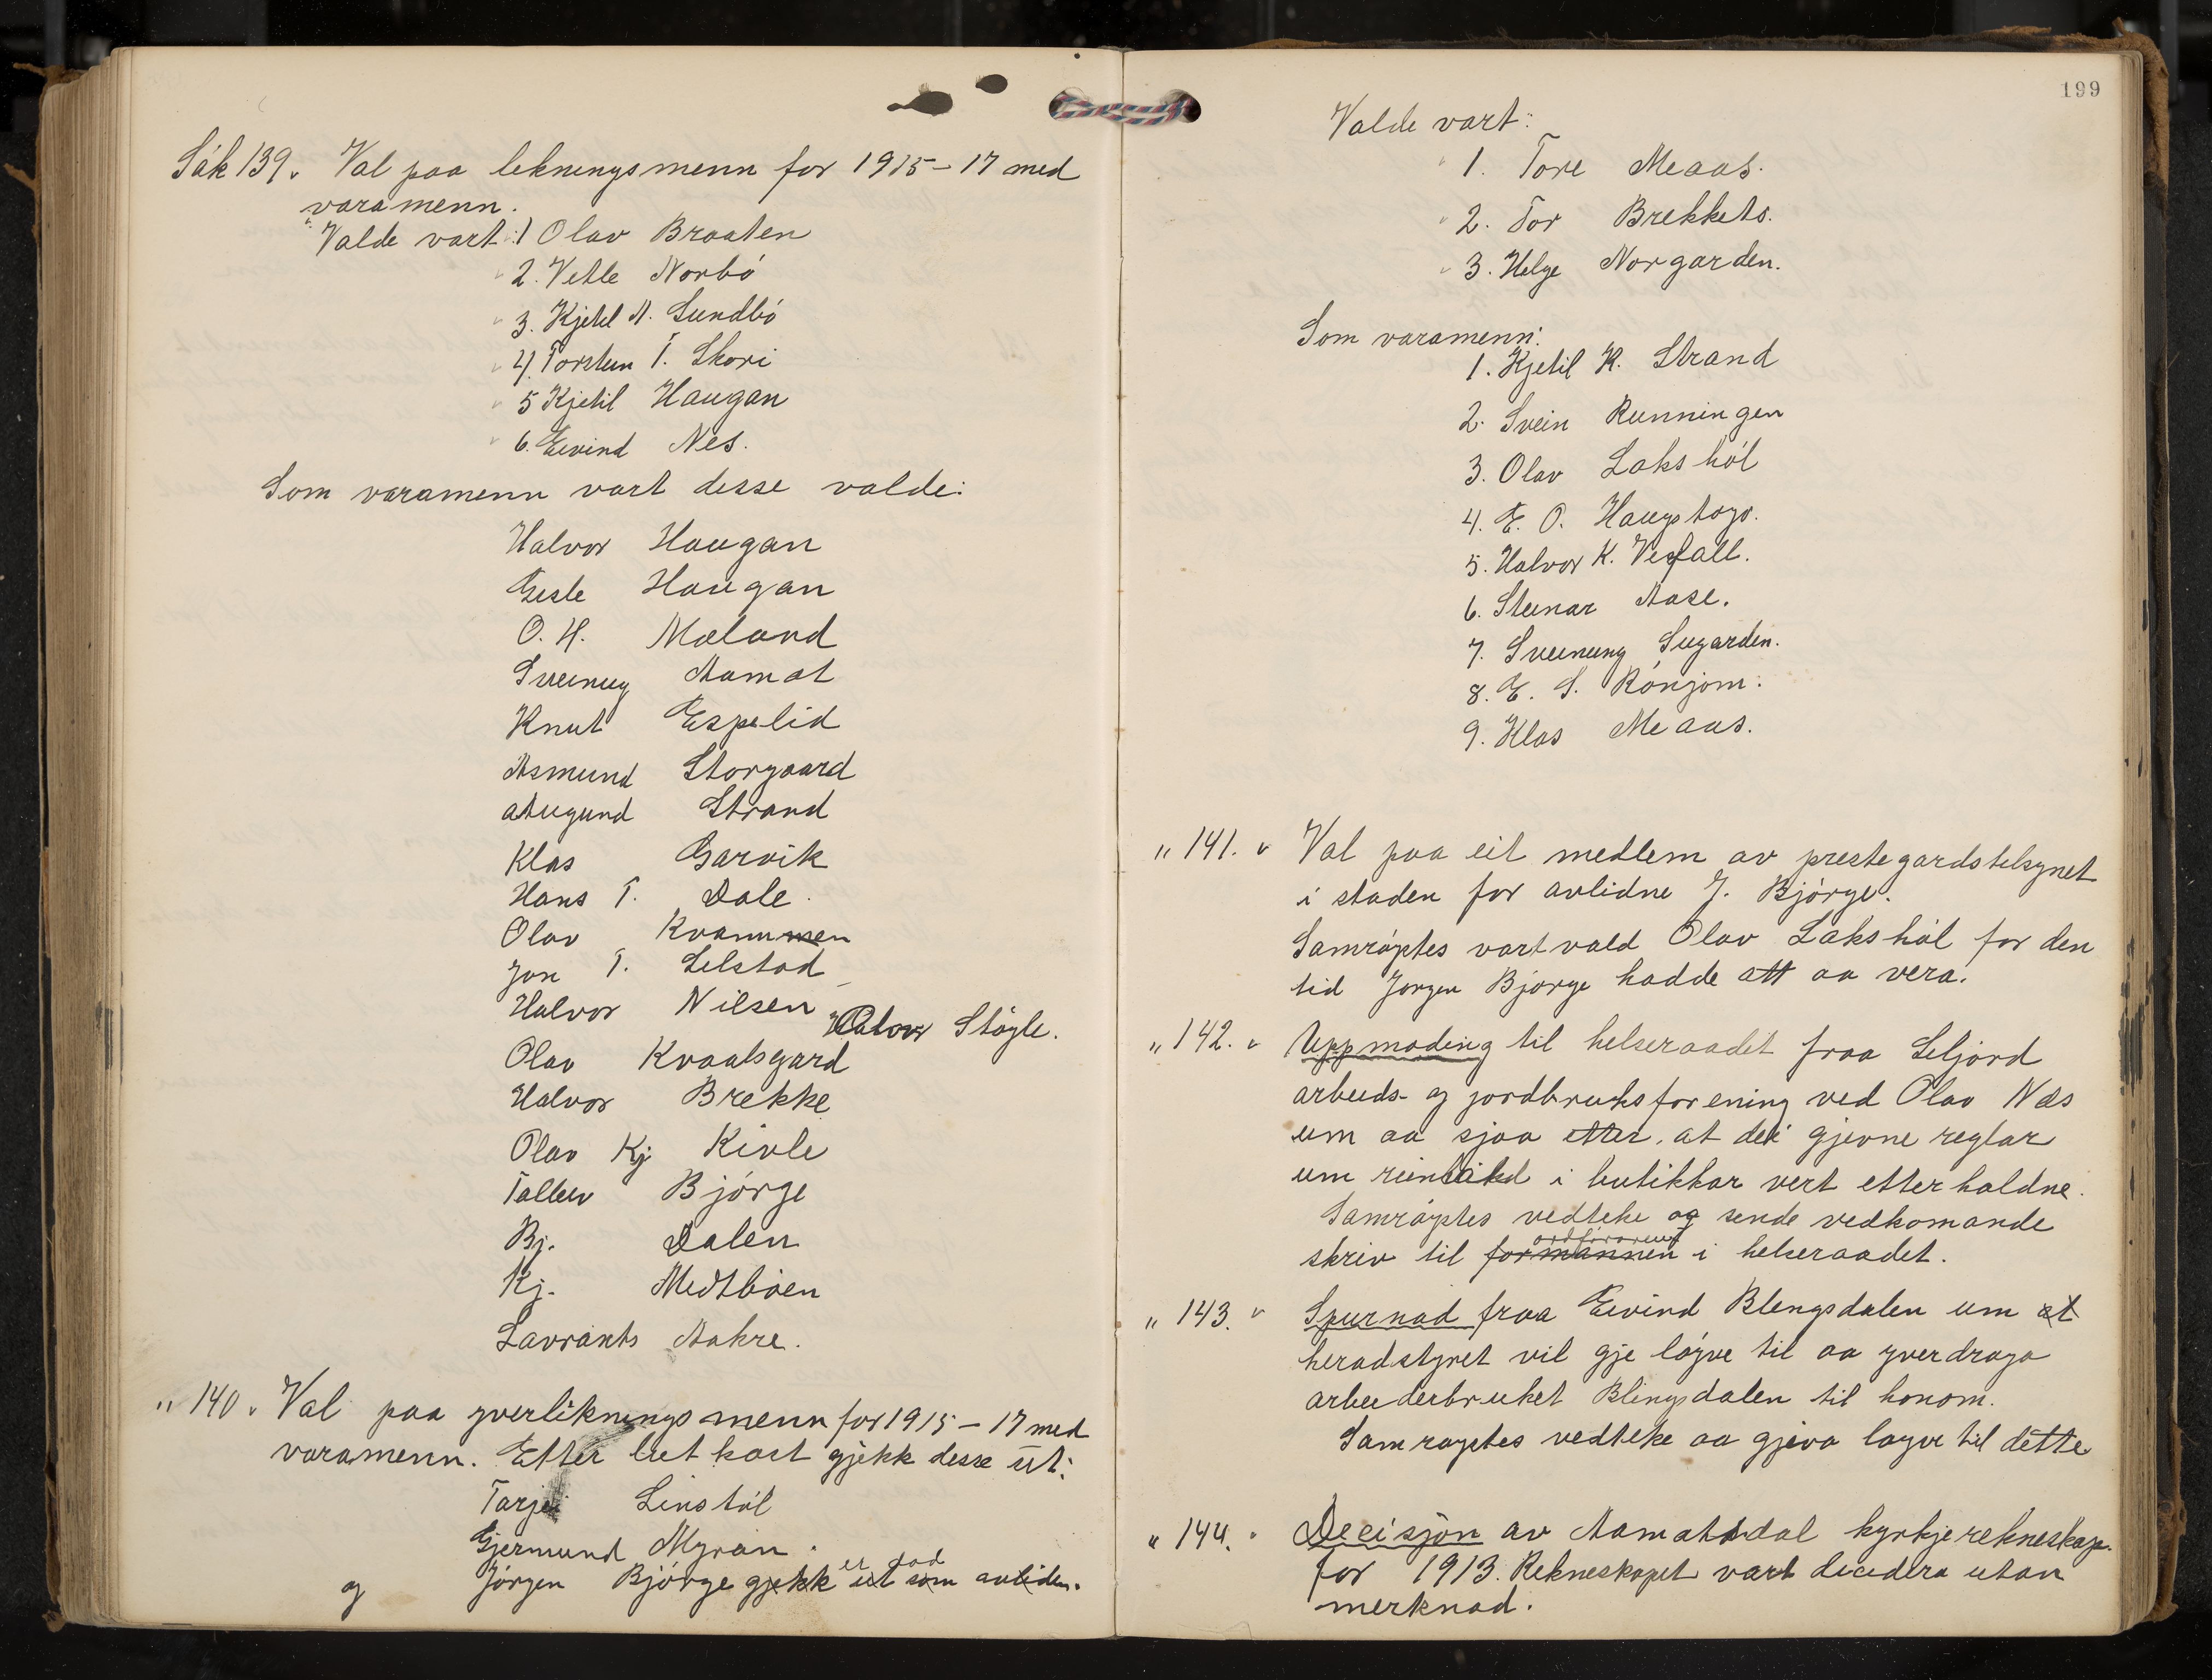 Sák 139. Val paa likningsmenn for 1915-17 med
varamenn.
Valde vart: 1 Olav Braaten
2. Vetle Norbó
3. Kjetel A. Sundbó
4. Torstein T. Skori
5 Kjetil Haugan
6. Eivind Nes.
Som varamenn vart desse valde:
Halvor Haugan
Gisle Haugan
O. H. Mæland
Sveinung Aamot
Knut Espelid
Asmund Storgaard
Augund Strand
Klas Garvik
Hans T. Dale.
Olav Kvammen
Jon T. Selstad
Halvor Nilsen
Halvor Stögle.
Olav Kvaalsgard
Halvor Brekke
Olav Kj Kivle
Talleiv Bjórge
Bj. Dalen
Kj. Medtbóen
Lavrants Aakre.
" 140. Val paa yverlikningsmenn for 1915-17 med
varamenn. Etter lutkast gjekk desse ut:
Tarjei Linstól
Gjermund Myran.
og Jórgen Bjórge gjekk ut som avliden.
er dad
199
Valde vart:
1. Tore Meaas.
2. Tor Brekketo.
3. Helge Norgarden.
Som varamenn:
1. Kjetil K. Strand
2. Svein Runningen
3. Olav Lakshól
4. E. O. Haugstogo.
5. Halvor K. Vefall.
6. Steinar Aase.
7. Sveinung Sugarden.
8. E. S. Rónjom.
9. Klas Meaas.
" 141. " Val paa eit medlem av prestegardstilsynet
i staden for avlidne J. Bjórge.
Samróystes vart vald Olav Lakshól for den
tid Jorgen Bjorge hadde att aa vera.
" 142. " Uppmoding til helseraadet fraa Seljord
arbeids- og jordbruksforening ved Olav Næs
um aa sjaa etter, at dei gjevne reglar
um reinhald i butikkar vert etterhaldne.
Samróystes vedteke og sende vedkomande
skriv til formannen i helseraadet.
ordfóraren
" 143. " Spurnad fraa Eivind Blengsdalen um at
heradstyret vil gje lóyve til aa yverdraga
arbeiderbruket Blingsdalen til honom.
Samroystes vedteke aa gjeva loyve til dette
" 144. " Decisjon av Aamotsdal kyrkjerekneskap.
for 1913. Rekneskapet vart decidera utan
merknad.